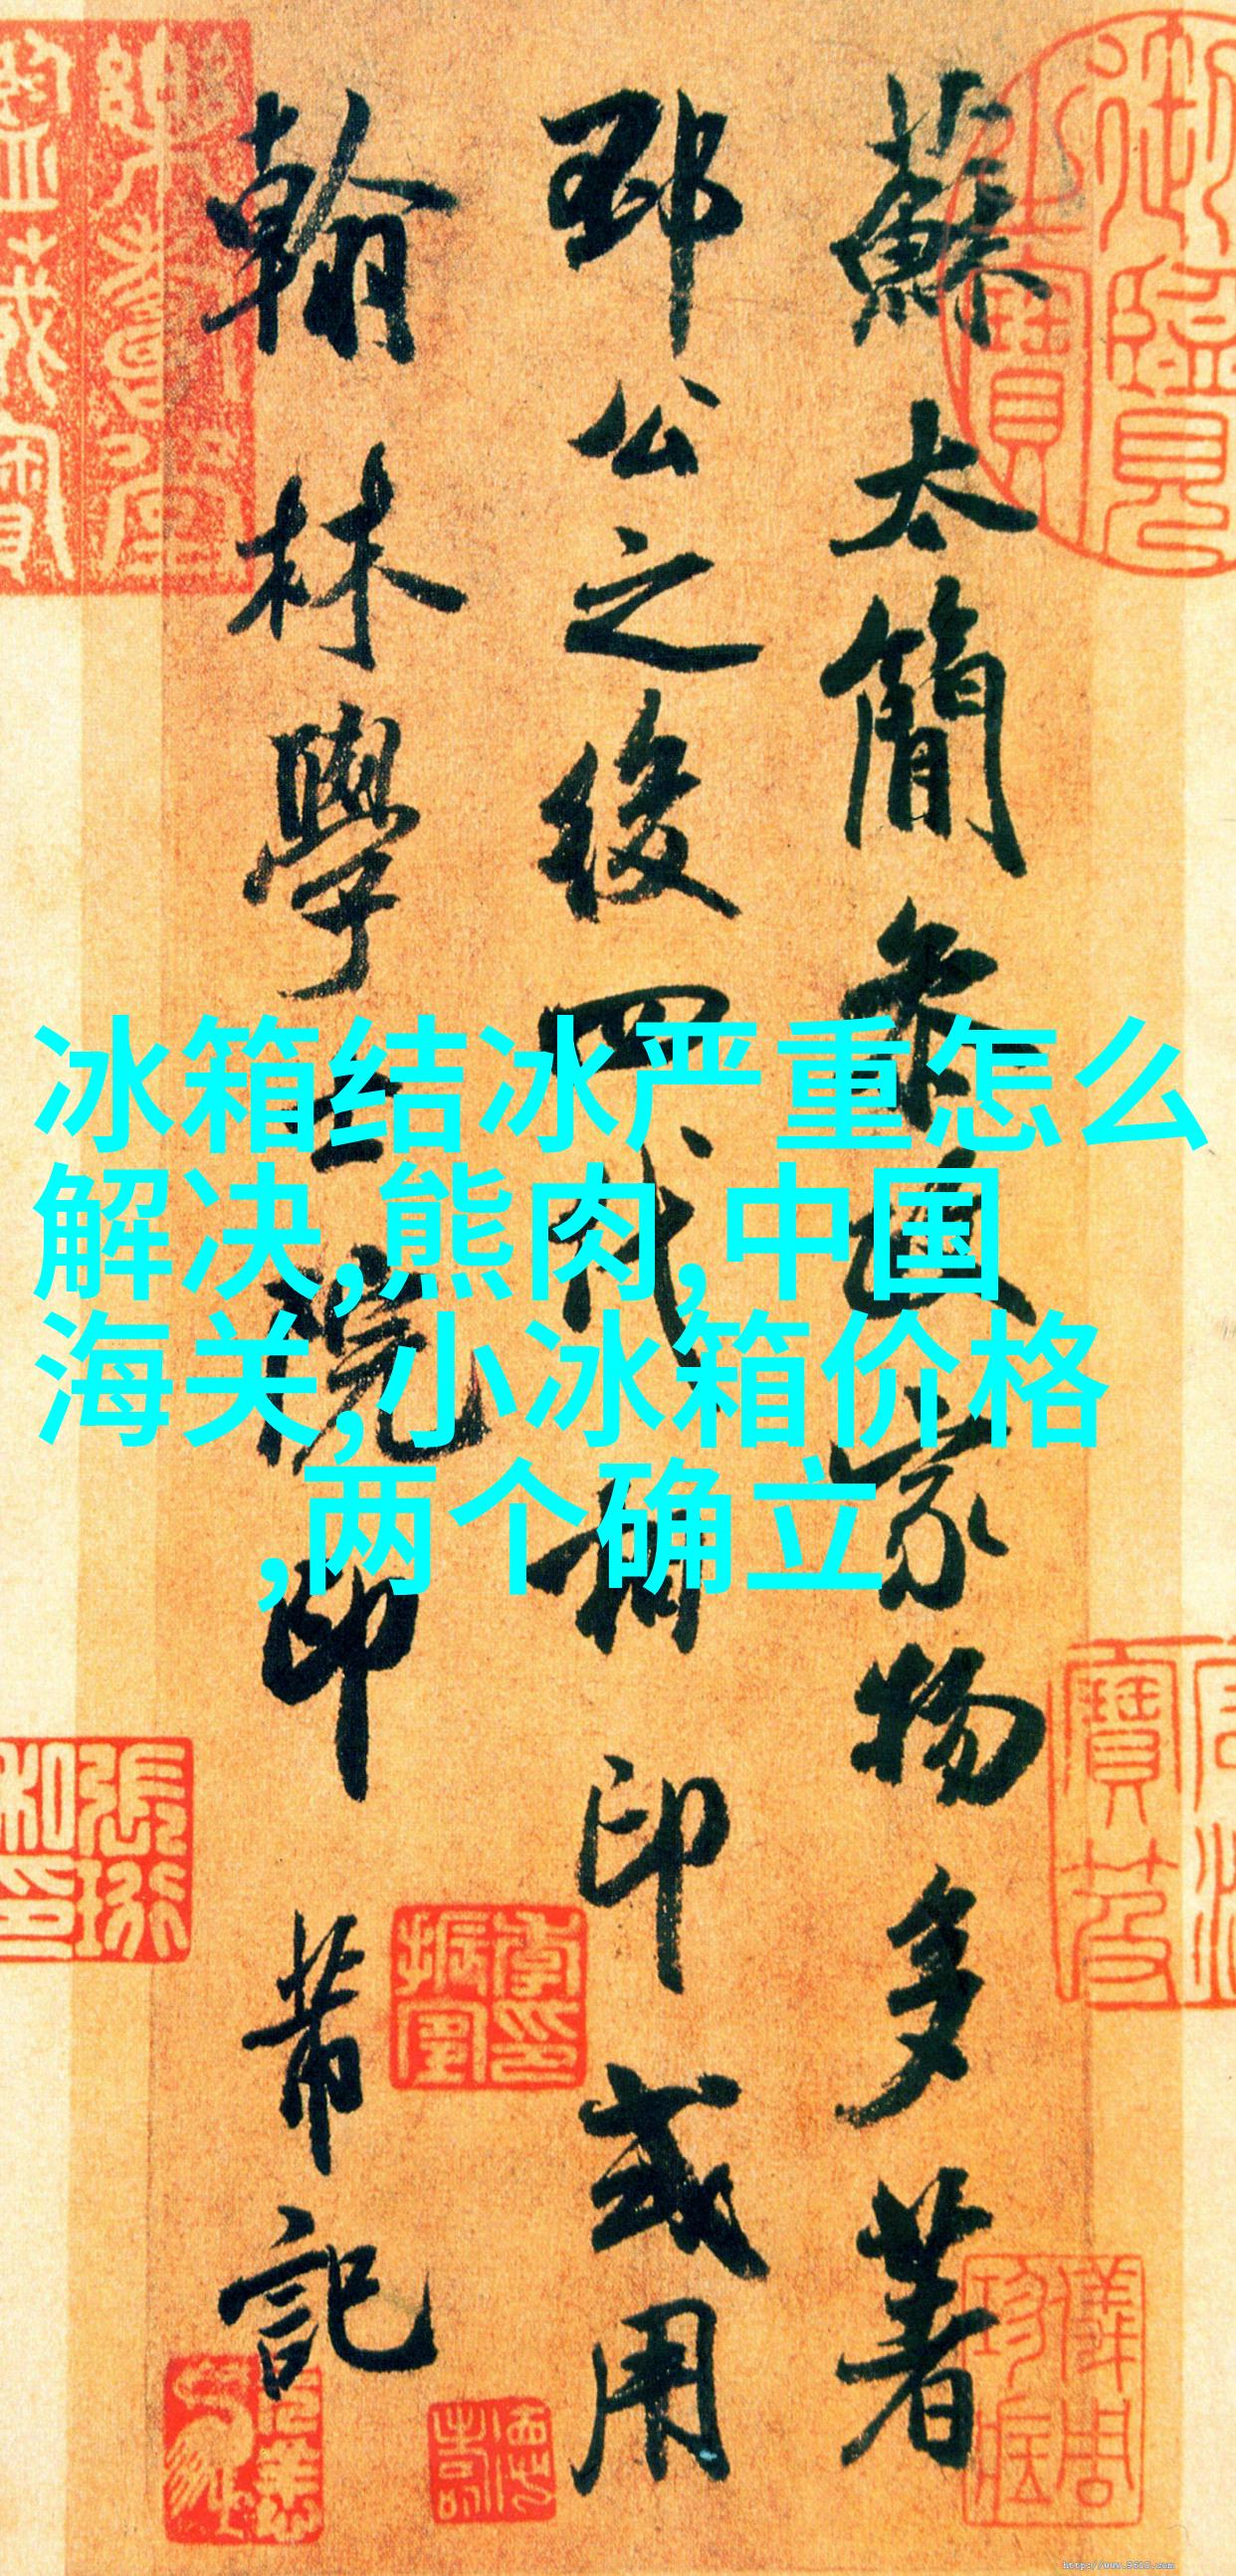 蘇太簡參政家物多著
邳公之後四代相印或用
翰林學士院印芾記
冰箱结冰严重怎么
解决,熊肉,中国
海关,小冰箱价格
,两个确立
御臨
張琰